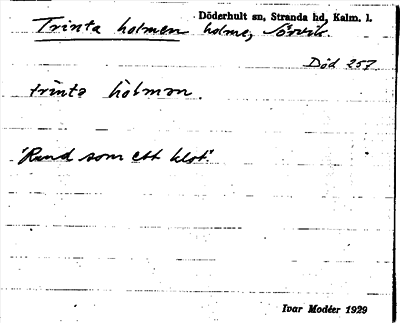 Döderhult sn, Stranda hd, Kalm. l.
Trinta holmen holme,
Död 257
trinta hòlmǝn.
"Rund som ett klot."
Ivar Modéer 1929